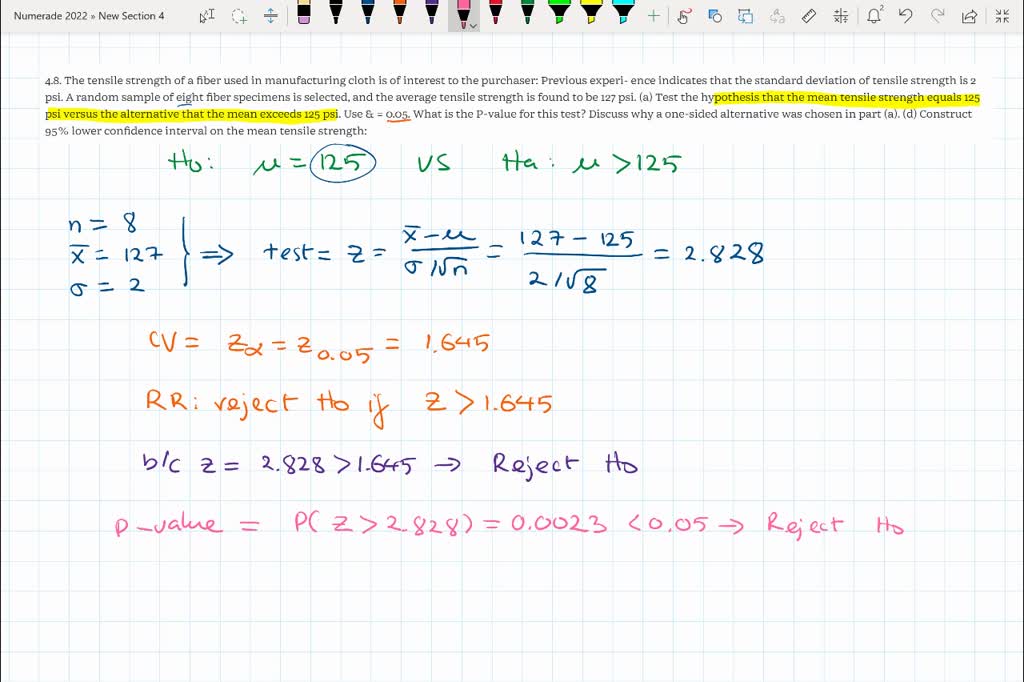 Numerade 2022 » New Section 4
2
4.8. The tensile strength of a fiber used in manufacturing cloth is of interest to the purchaser: Previous experi- ence indicates that the standard deviation of tensile strength is 2
psi. A random sample of eight fiber specimens is selected, and the average tensile strength is found to be 127 psi. (a) Test the hypothesis that the mean tensile strength equals 125
psi versus the alternative that the mean exceeds 125 psi. Use & = 0.05. What is the P-value for this test? Discuss why a one-sided alternative was chosen in part (a). (d) Construct
95% lower confidence interval on the mean tensile strength:
Ho: μ = 125 vs Ha: μ > 125
n = 8
x̄ = 127
σ = 2
⇒ test = z = x̄ - μ / σ/√n = 127 - 125 / 2/√8 = 2.828
CV = zα = z0.05 = 1.645
RR: reject Ho if z > 1.645
b/c z = 2.828 > 1.645 → Reject Ho
P-value = P( z > 2.828) = 0.0023 < 0.05 → Reject Ho